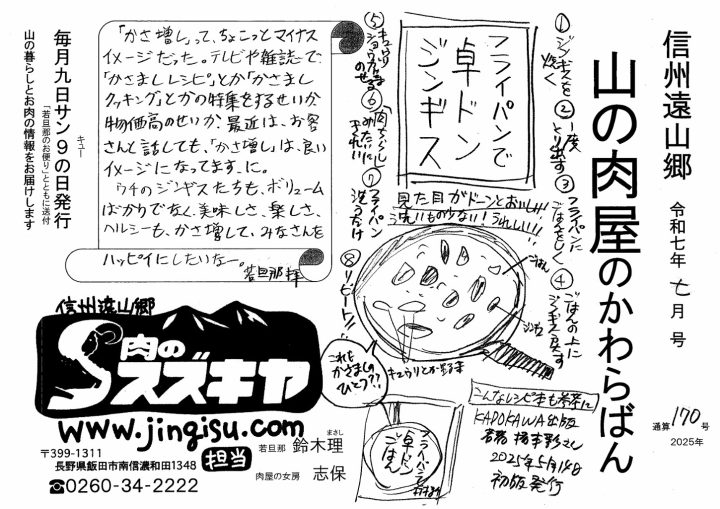 信州遠山郷
山の肉屋のかわらばん
令和七年 七月 号
通算 170 号
2025年
フライパンで
卓ドン
ジンギス
① ジンギスを
焼く
② 一度
とり出す
③ フライパンに
ごはんをしく
④ ごはんの上に
ジンギス戻す
⑤ キュウリ
のせる
⑥
きれい
⑦ フライパン
洗うだけ
⑧ リピート!!
見た目がドーンとおいしい!!
洗いものもない! うれしい!!!
ごはん
ジンギス
キュウリとか
これも
かさましの
ひとつ??
フライパンで
卓ドン
ごはん
こんなレシピ本も参考に
KADOKAWA出版
著者 橋本彩さん
2025年5月14日
初版発行
「かさ増し」って、ちょこっとマイナス
イメージだった。テレビや雑誌で
「かさましレシピ」とか「かさまし
クッキング」とかの特集をするせいか、
物価高のせいか、最近は、お客
さんと話しても、「かさ増し」は、良い
イメージになってます。に。
ウチのジンギスたちも、ボリューム
ばかりでなく、美味しさ、楽しさ、
ヘルシーも、かさ増して、みなさんを
ハッピイにしたいなー。
若旦那 拝
毎月九日サン9の日発行
キュー
「若旦那のお便り」とともに送付
山の暮らしとお肉の情報をお届けします
信州遠山郷
肉の
スズキヤ
www.jingisu.com
〒399-1311
長野県飯田市南信濃和田1348
☎0260-34-2222
担当
若旦那 鈴木理
まさし
肉屋の女房 志保